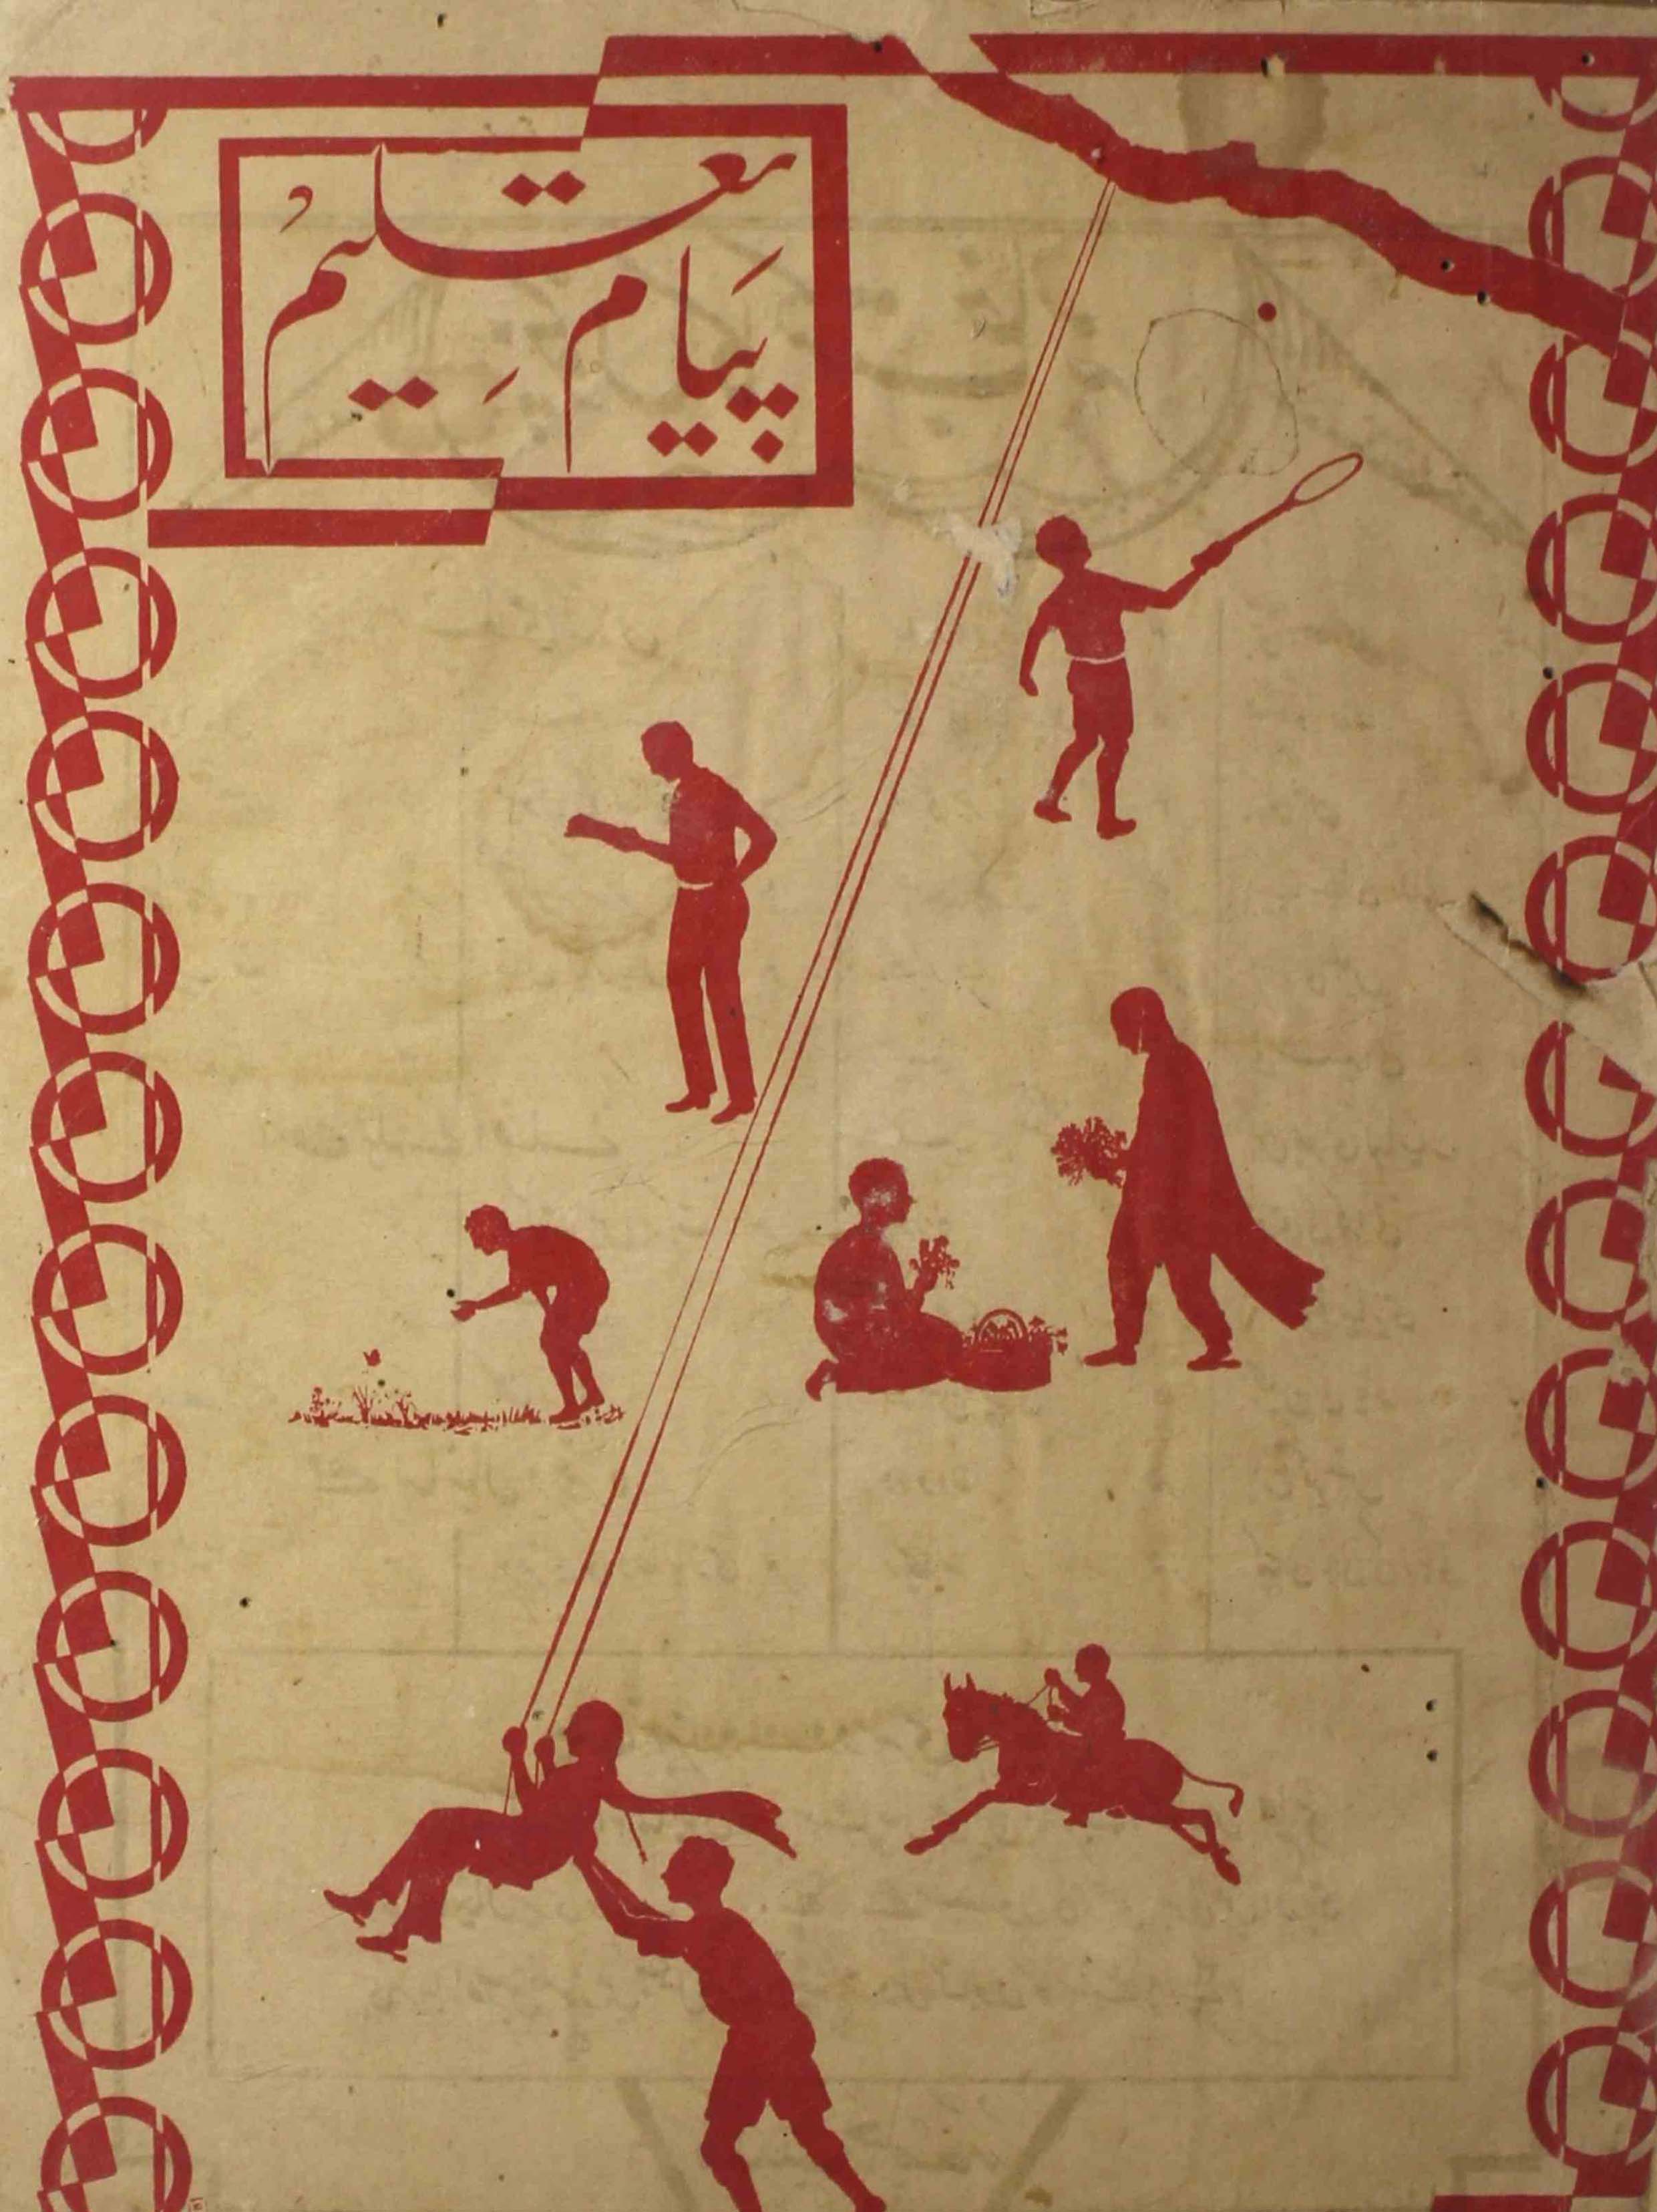 پَیَامِ تعلیمؔ